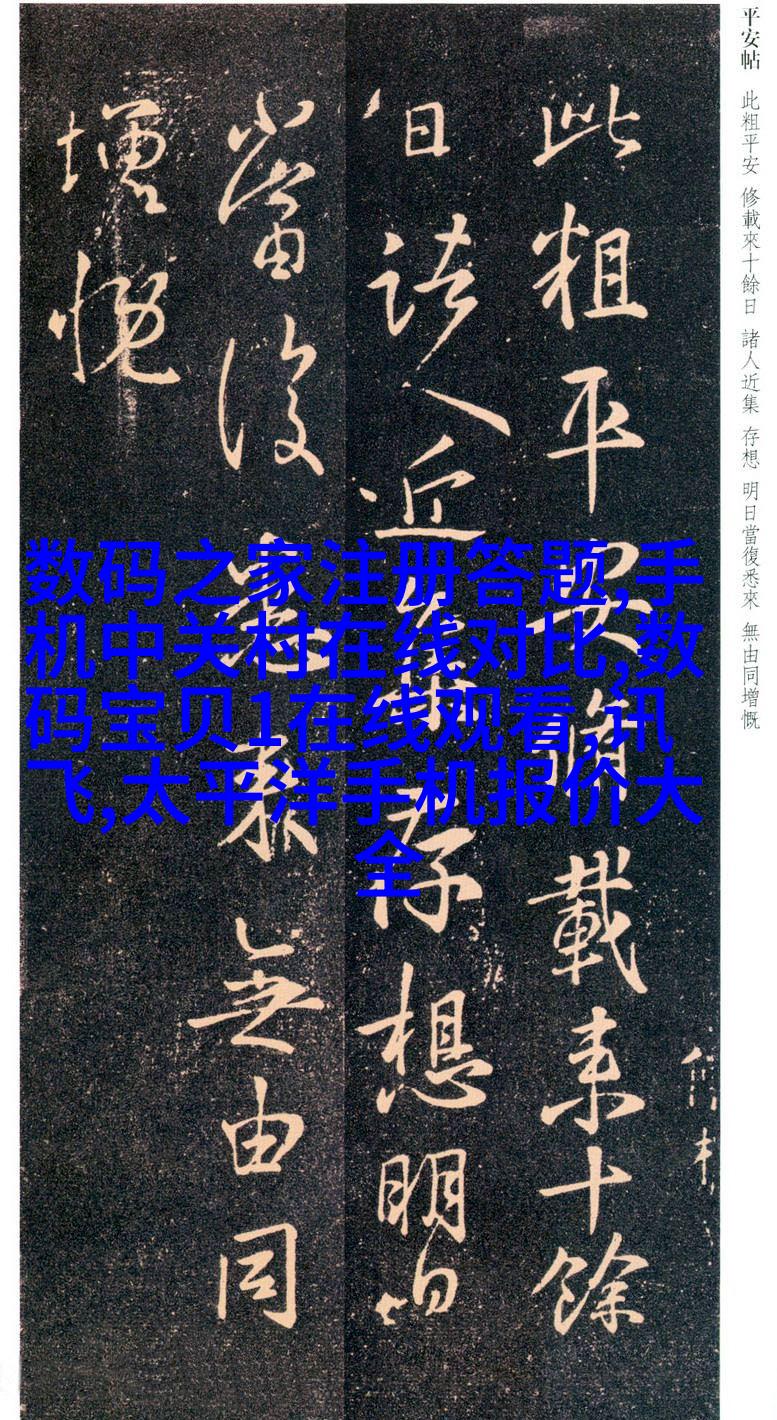 平安帖 此粗平安 修載來十餘日 諸人近集 存想 明日當復悉來 無由同增慨
此粗平安脩載来十餘
日諸人近集存想明日
當復悉来無由同
增慨
数码之家注册答题,手
机中关村在线对比,数
码宝贝1在线观看,讯
飞,太平洋手机报价大
全